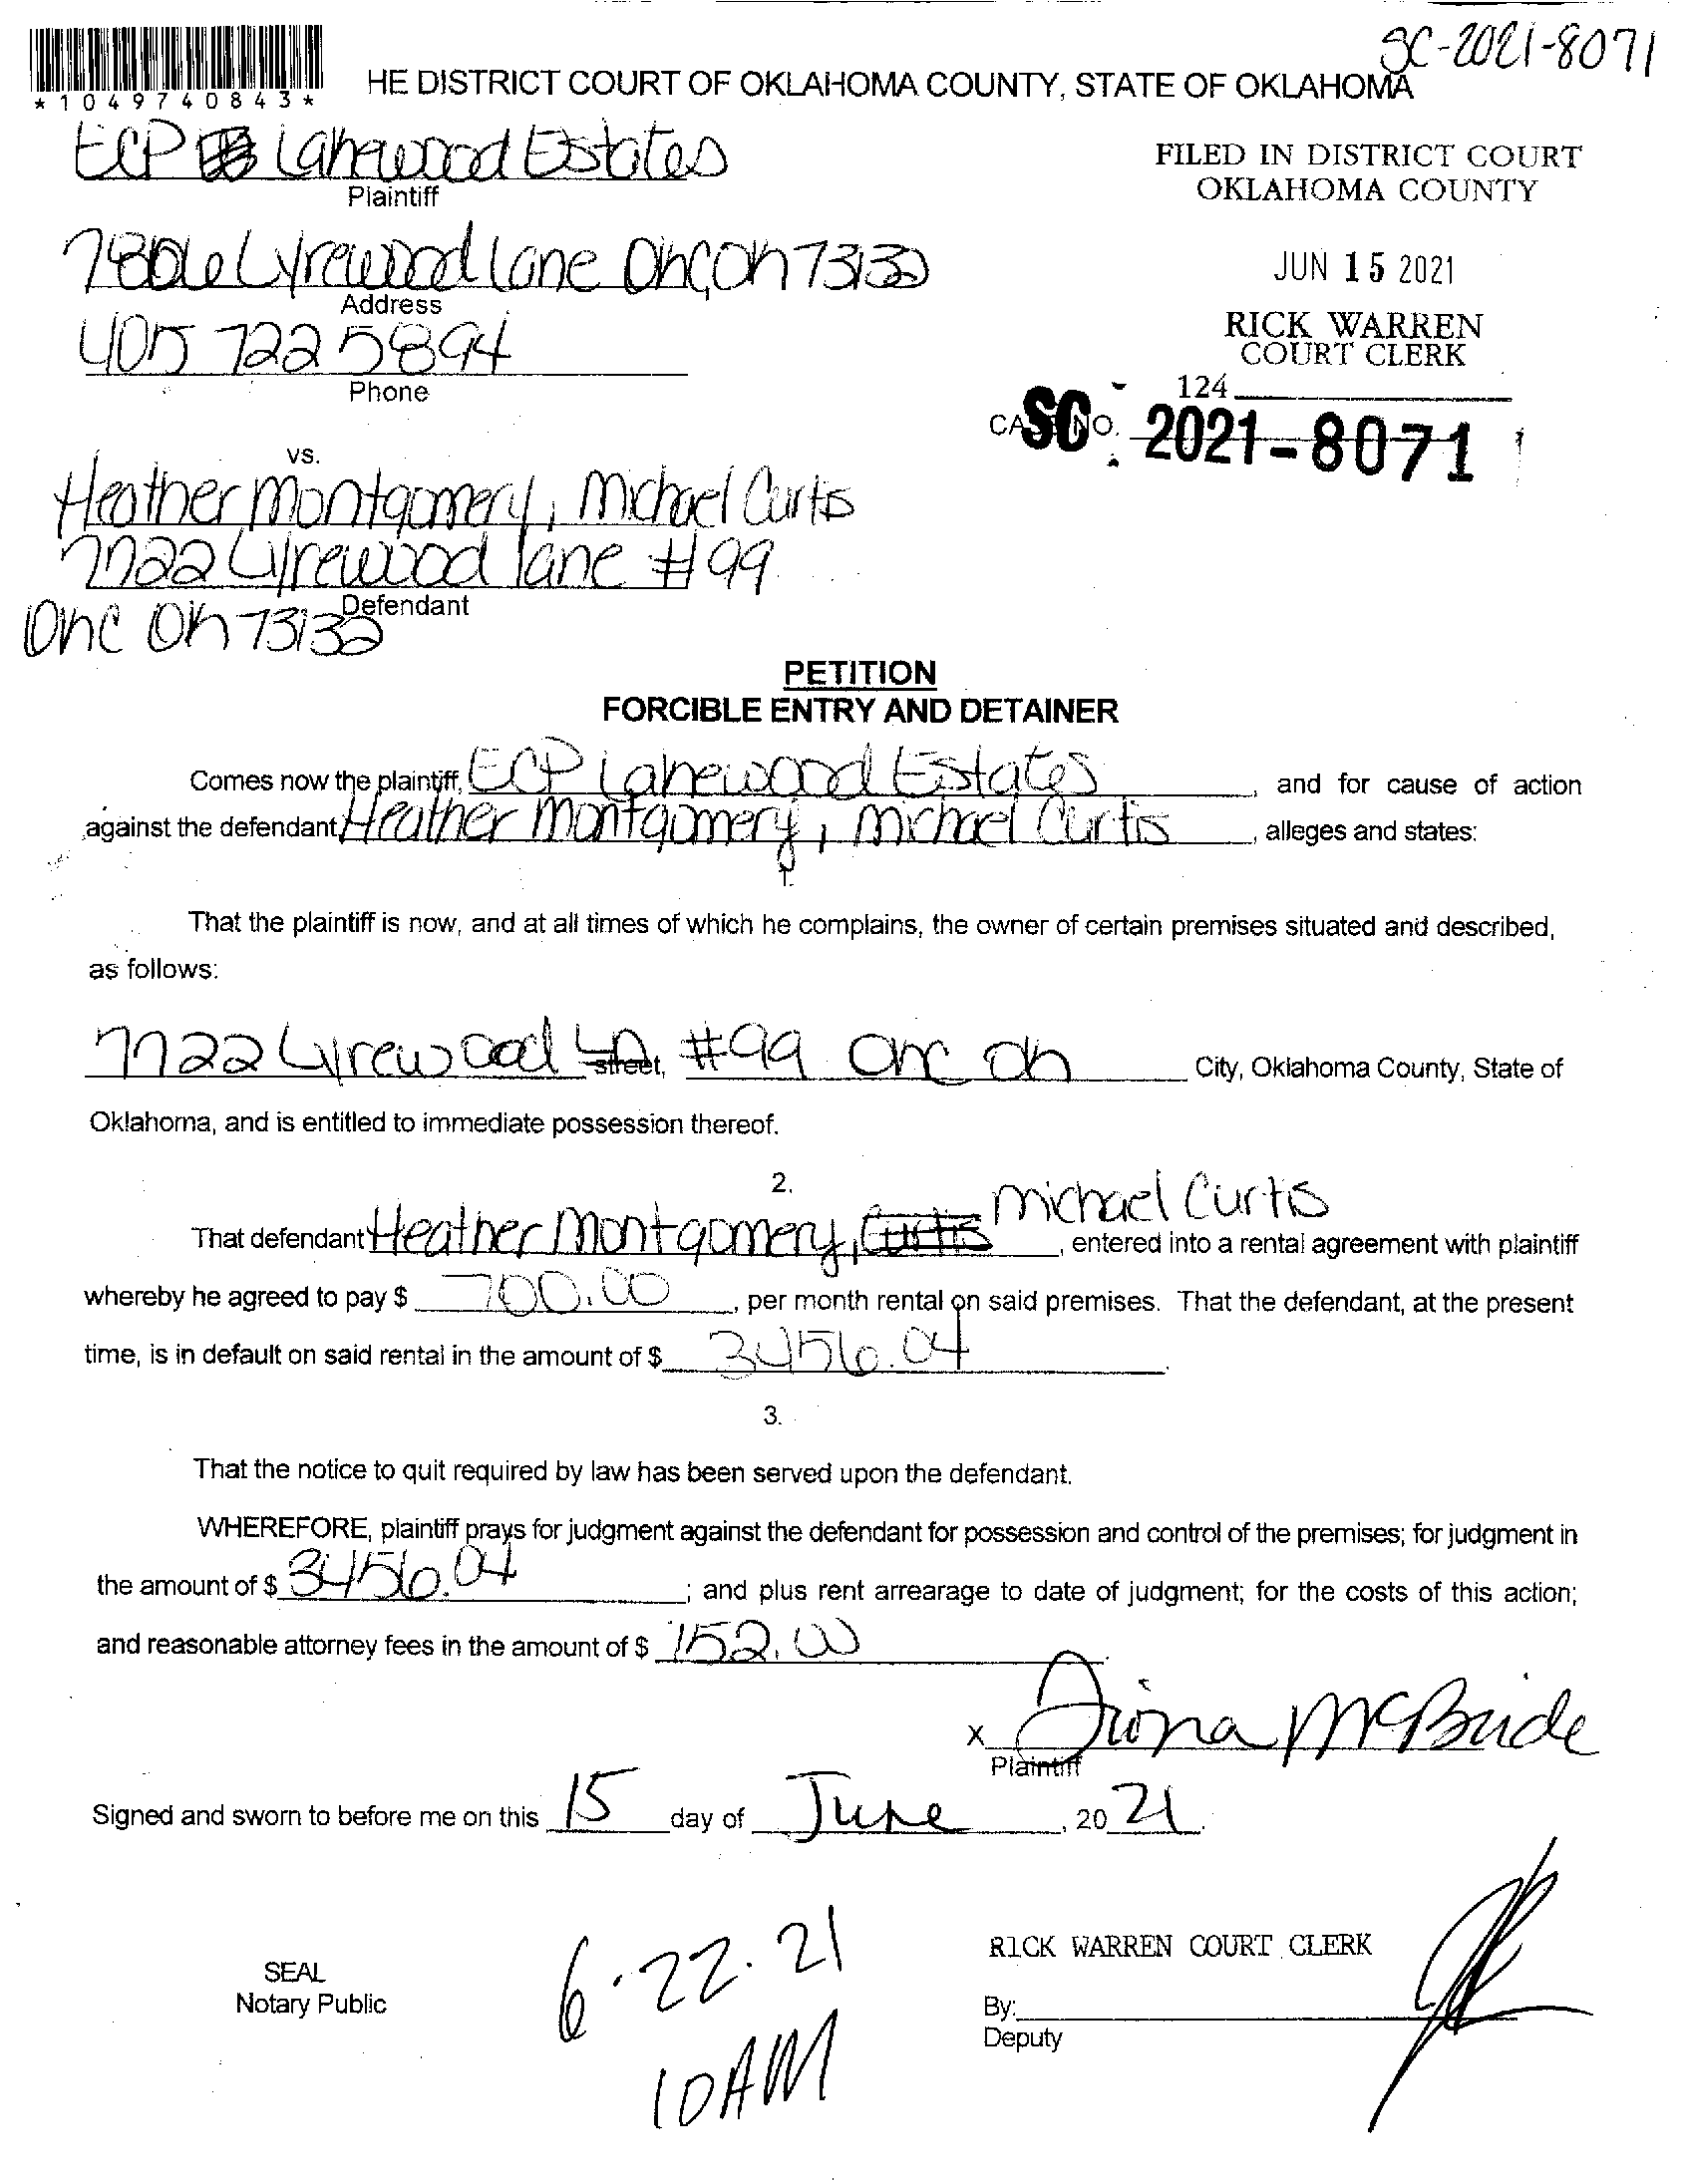 SC-2021-8071
*1049740843*
HE DISTRICT COURT OF OKLAHOMA COUNTY, STATE OF OKLAHOMA
ECP Lakewood Estates
Plaintiff
FILED IN DISTRICT COURT
OKLAHOMA COUNTY
Lyrewood Lane OKC, OK 73132
Address
JUN 15 2021
405 722 5894
Phone
RICK WARREN
COURT CLERK
124
CASE NO. SC 2021-8071
vs.
Heather Montgomery, Michael Curtis
7722 Lyrewood lane #99
Defendant
OKC OK 73132
PETITION
FORCIBLE ENTRY AND DETAINER
Comes now the plaintiff, ECP Lakewood Estates, and for cause of action
against the defendant, Heather Montgomery, Michael Curtis, alleges and states:
1.
That the plaintiff is now, and at all times of which he complains, the owner of certain premises situated and described,
as follows:
7722 Lyrewood Ln street, #99 OKC OK City, Oklahoma County, State of
Oklahoma, and is entitled to immediate possession thereof.
2.
That defendant Heather Montgomery, Curtis Michael Curtis, entered into a rental agreement with plaintiff
whereby he agreed to pay $ 700.00, per month rental on said premises. That the defendant, at the present
time, is in default on said rental in the amount of $ 3456.04.
3.
That the notice to quit required by law has been served upon the defendant.
WHEREFORE, plaintiff prays for judgment against the defendant for possession and control of the premises; for judgment in
the amount of $ 3456.04; and plus rent arrearage to date of judgment; for the costs of this action;
and reasonable attorney fees in the amount of $ 152.00.
x McBride
Plaintiff
Signed and sworn to before me on this 15 day of June, 20 21.
6.22.21
10AM
SEAL
Notary Public
RICK WARREN COURT CLERK
By:
Deputy